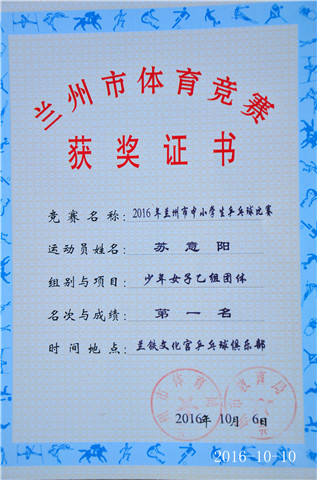 兰州市体育竞赛
获奖证书
竞赛名称：2016年兰州市中小学生乒乓球比赛
运动员姓名：苏意阳
组别与项目：少年女子乙组团体
名次与成绩：第一名
时间地点：兰铁文化宫乒乓球俱乐部
2016年10月6日
2016-10-10